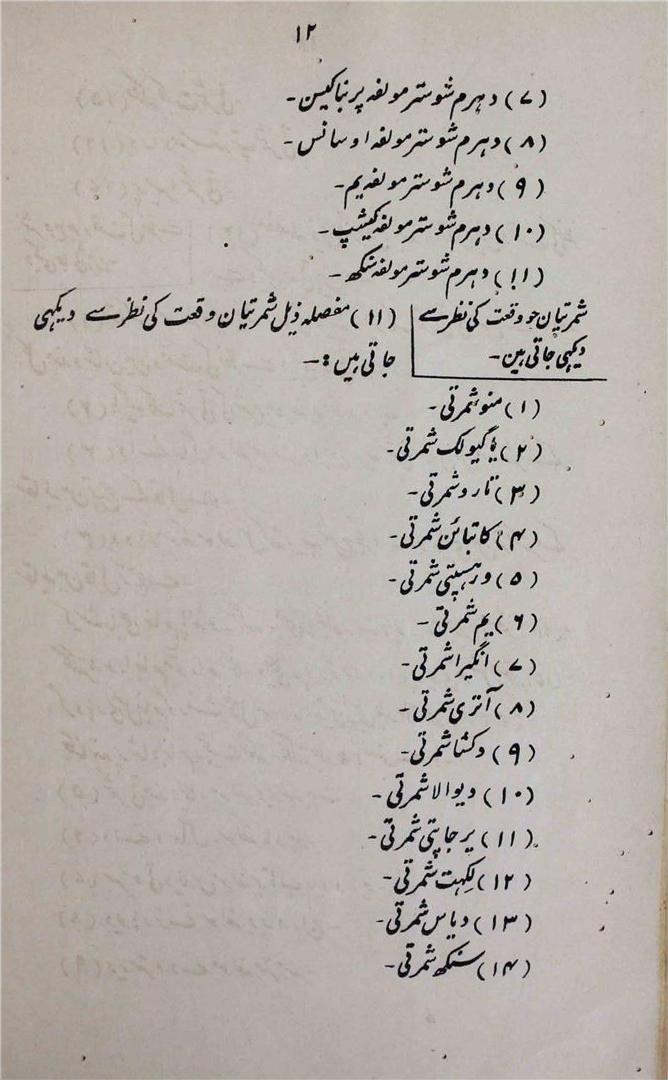 ۱۲
(۷) دہرم شوستر مولفہ پرنباکیسن-
(۸) دہرم شوستر مولفہ اوسانس-
(۹) دہرم شوستر مولفہ یم-
(۱۰) دہرم شوستر مولفہ کیشپ-
(۱۱) دہرم شوستر مولفہ سنکھ-
شمرتیان جو وقعت کی نظر سے
دیکہی جاتی ہین-
(۱۱) مفصلہ ذیل شمرتیان وقعت کی نظر سے دیکہی
جاتی ہیں:-
(۱) منو شمرتی-
(۲) یاگیولک شمرتی-
(۳) نارد شمرتی-
(۴) کاتبائن شمرتی-
(۵) ورہسپتی شمرتی-
(۶) یم شمرتی-
(۷) انگیرا شمرتی-
(۸) آتری شمرتی-
(۹) دکشا شمرتی-
(۱۰) دیوالا شمرتی-
(۱۱) پرجاپتی شمرتی-
(۱۲) لکہت شمرتی-
(۱۳) دیاس شمرتی-
(۱۴) سنکھ شمرتی-